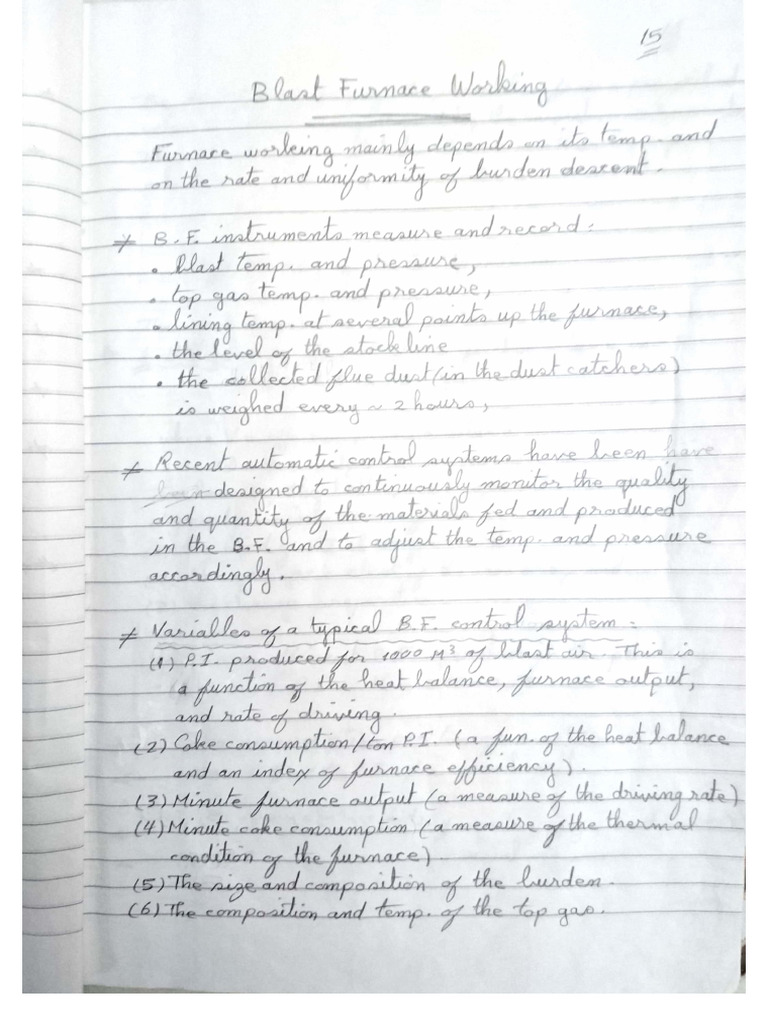 15
Blast Furnace Working
Furnace working mainly depends on its temp. and
on the rate and uniformity of burden descent.
* B.F. instruments measure and record:
• blast temp. and pressure,
• top gas temp. and pressure,
• lining temp. at several points up the furnace,
• the level of the stock line
• the collected flue dust (in the dust catchers)
is weighed every ~ 2 hours,
* Recent automatic control systems have been have
been designed to continuously monitor the quality
and quantity of the materials fed and produced
in the B.F. and to adjust the temp. and pressure
accordingly.
* Variables of a typical B.F. control system:
(1) P.I. produced for 1000 M³ of blast air. This is
a function of the heat balance, furnace output,
and rate of driving.
(2) Coke consumption/ton P.I. (a fun. of the heat balance
and an index of furnace efficiency).
(3) Minute furnace output (a measure of the driving rate)
(4) Minute coke consumption (a measure of the thermal
condition of the furnace).
(5) The size and composition of the burden.
(6) The composition and temp. of the top gas.